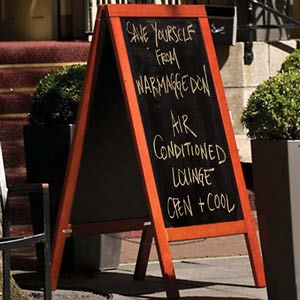 SAVE YOURSELF
FROM
WARMAGGEDON
AIR
CONDITIONED
LOUNGE
OPEN + COOL